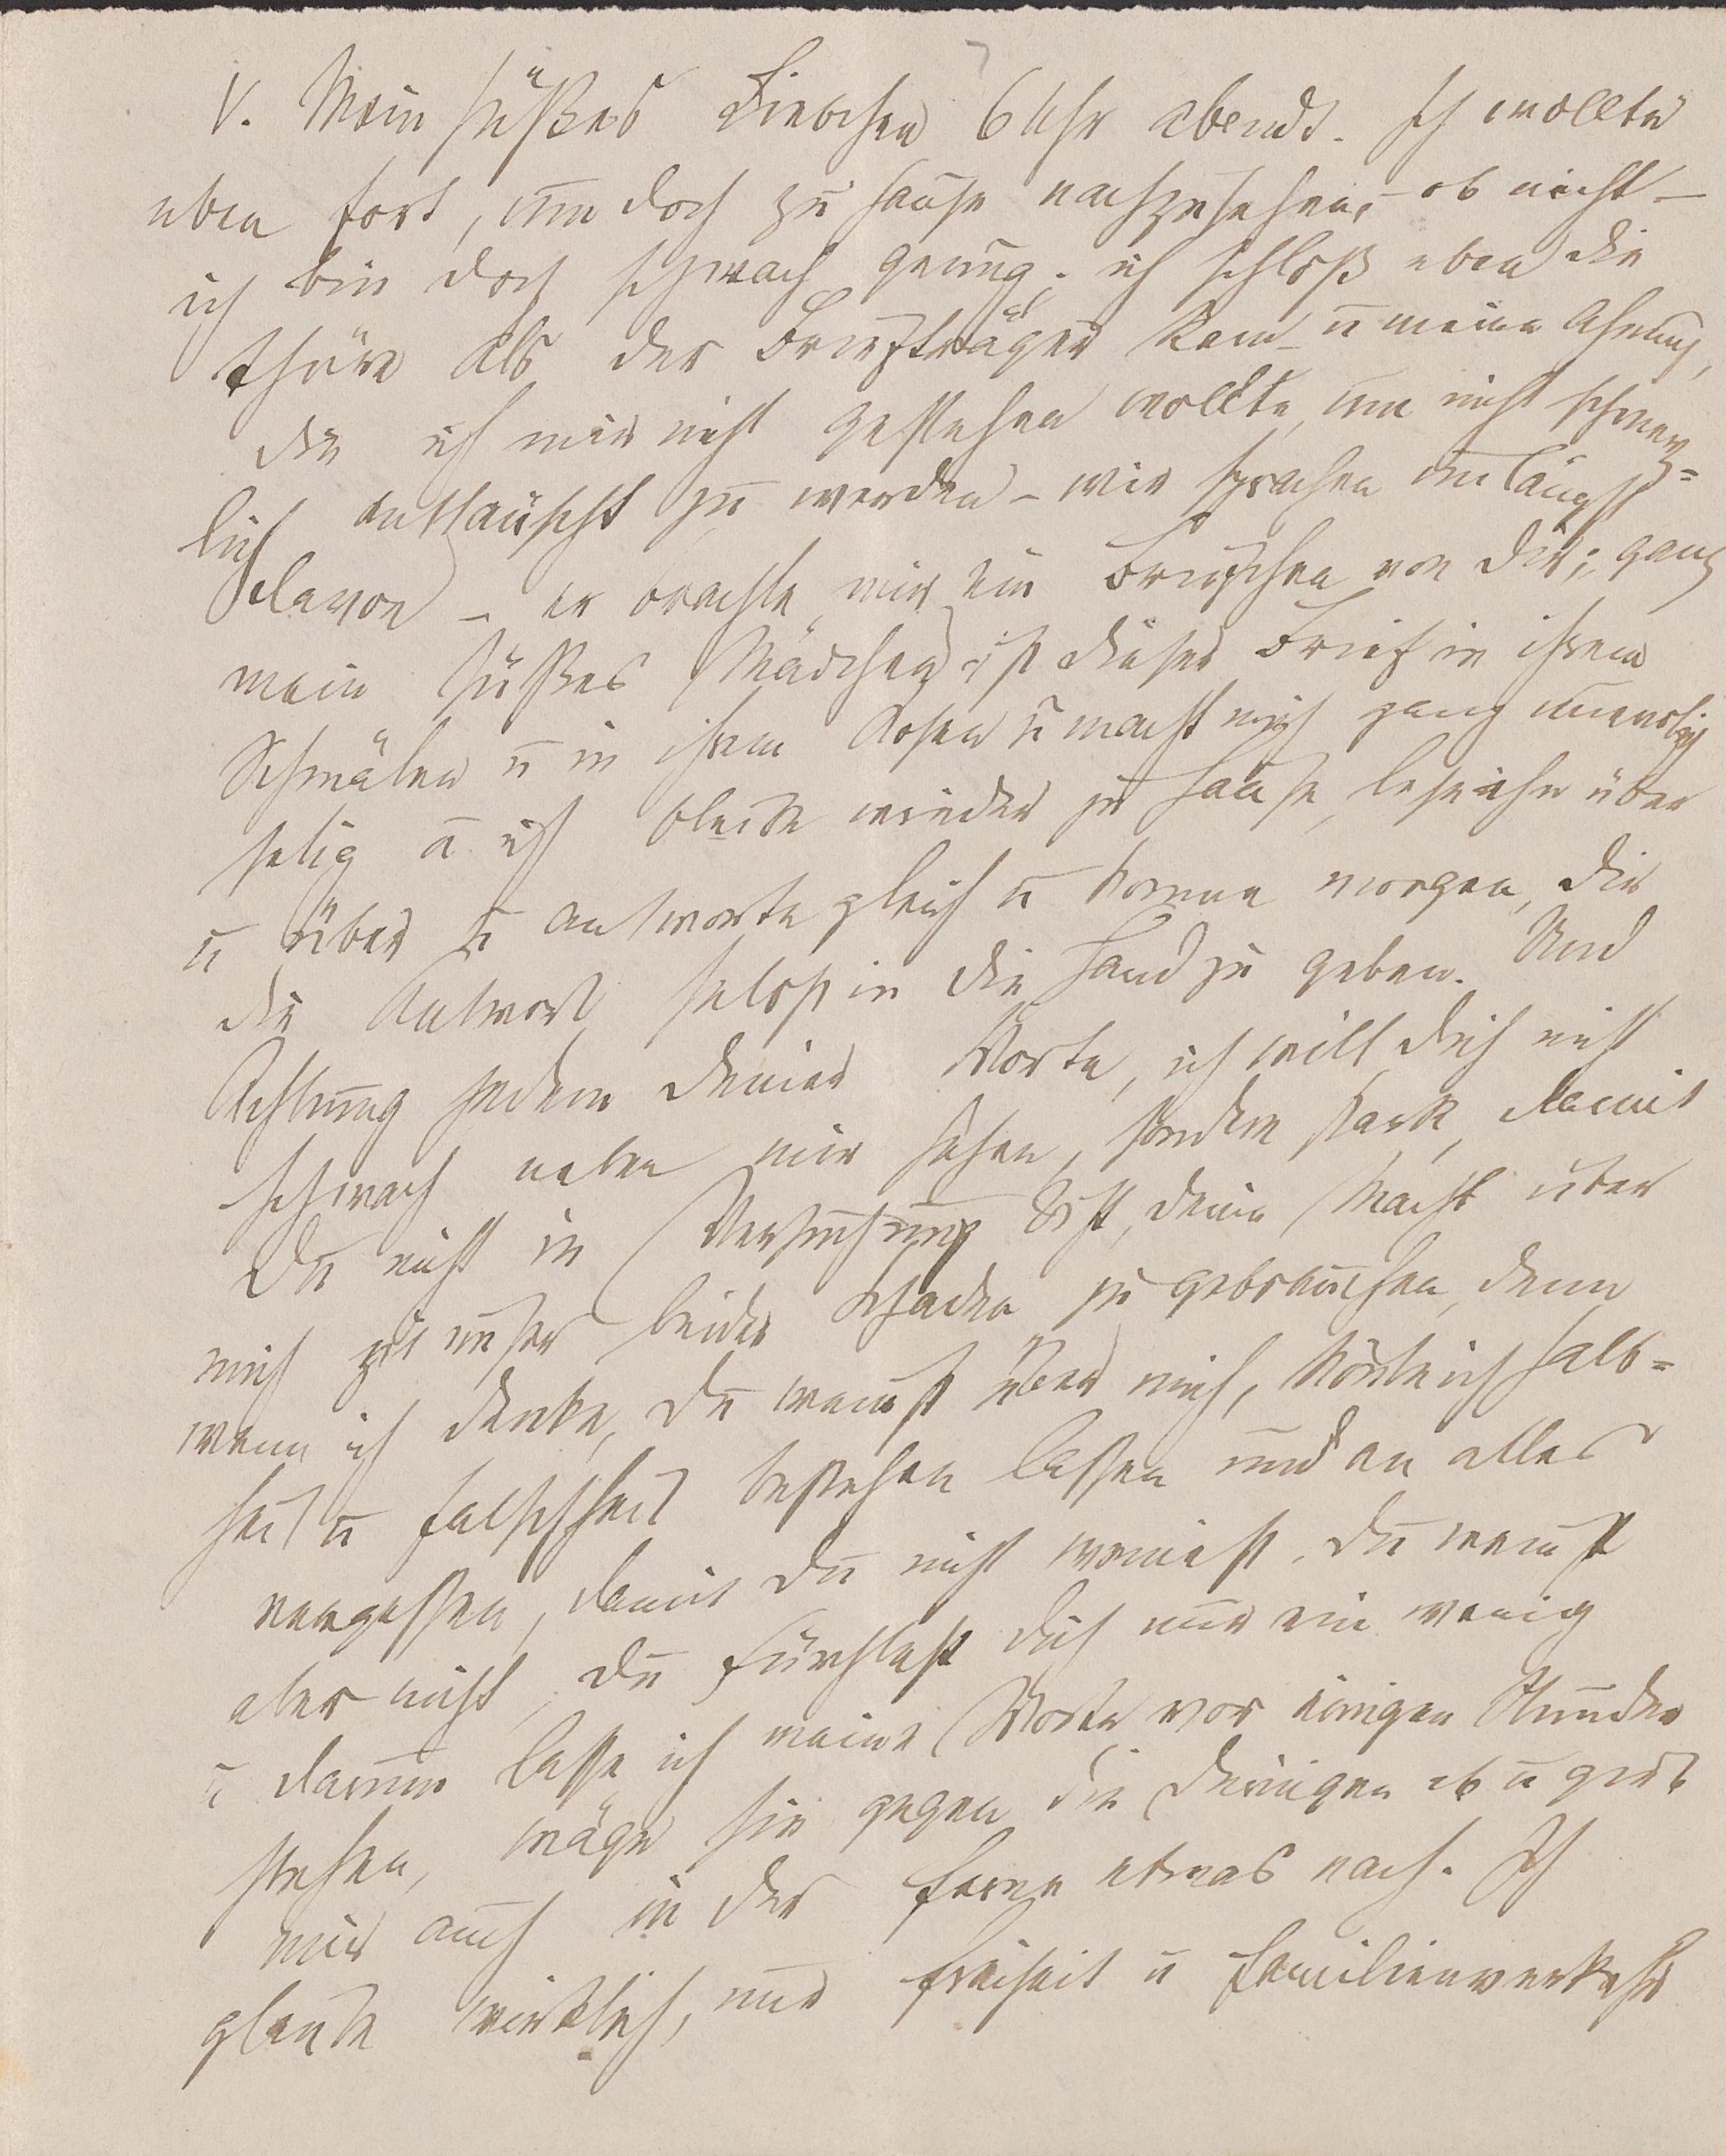 V. Mein süßes Liebchen 6 Uhr abends. Ich wollte
eben fort, um doch zu Hause nachzusehen, – ob nicht –
ich bin doch schwach genug; ich schloß eben die
Thüre als der Briefträger kam – u meine Ahnung,
die ich mir nicht gestehen wollte um nicht schmerz=
lich enttäuscht zu werden – wir sprachen unlängst
davon – er brachte mir ein Briefchen von dir; ganz
mein süßes Mädchen ist dieser Brief in ihrem
Schmälen u in ihrem Kosen u macht mich ganz unendlich
selig u ich bleibe wieder zu Hause, lese ihn über
u über u antworte gleich u komme morgen, dir
die Antwort selbst in die Hand zu geben. Und
Achtung jedem deiner Worte, ich will dich nicht
schwach neben mir sehen, sondern stark, damit
du nicht in Versuchung bist, deine Macht über
mich zu unser beider Schaden zu gebrauchen, denn
wenn ich denke, du weinst über mich, könnte ich Halb=
heit u Falschheit bestehen lassen und an alles
vergessen, damit du nicht weinest. Du weinst
aber nicht, du fürchtest dich nur ein wenig
u darum lasse ich meine Worte vor einigen Stunden
stehen, wäge sie gegen die deinigen ab u gebe
mir auch in der Form etwas nach. Ich
glaube wirklich, nur Freiheit u Familienverkehr